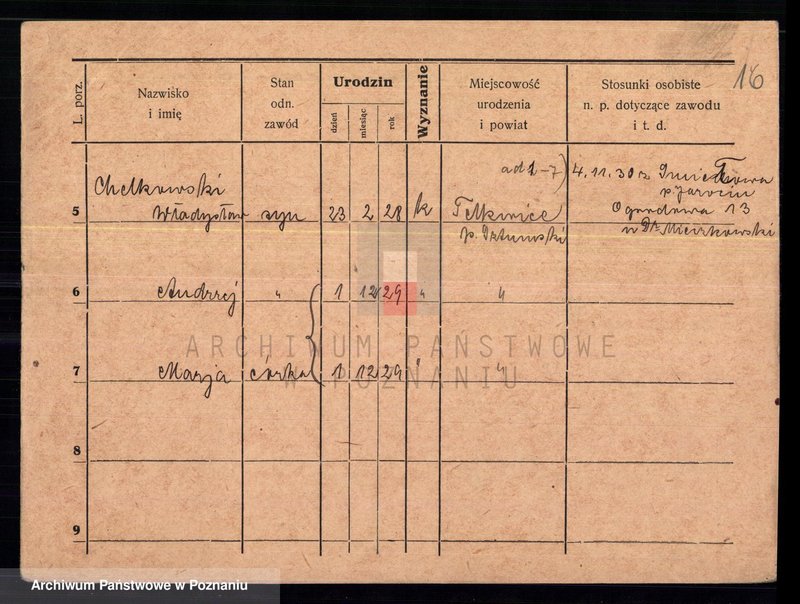 16
L. porz.
Nazwisko i imię
Stan odn. zawód
Urodzin
dzień
miesiąc
rok
Wyznanie
Miejscowość urodzenia i powiat
Stosunki osobiste n. p. dotyczące zawodu i t. d.
ad 1-7) 4. 11. 30 z
p. Jarocin
Chełkowski
5 Władysław syn 23 2 28 k Telkwice Ogrodowa 13
p. Sztumski u Dr. Mieczkowski
6 Andrzej " 1 12 29 " "
7 Marja córka 1 12 29 " "
8
9
ARCHIWUM PAŃSTWOWE
W POZNANIU
Archiwum Państwowe w Poznaniu